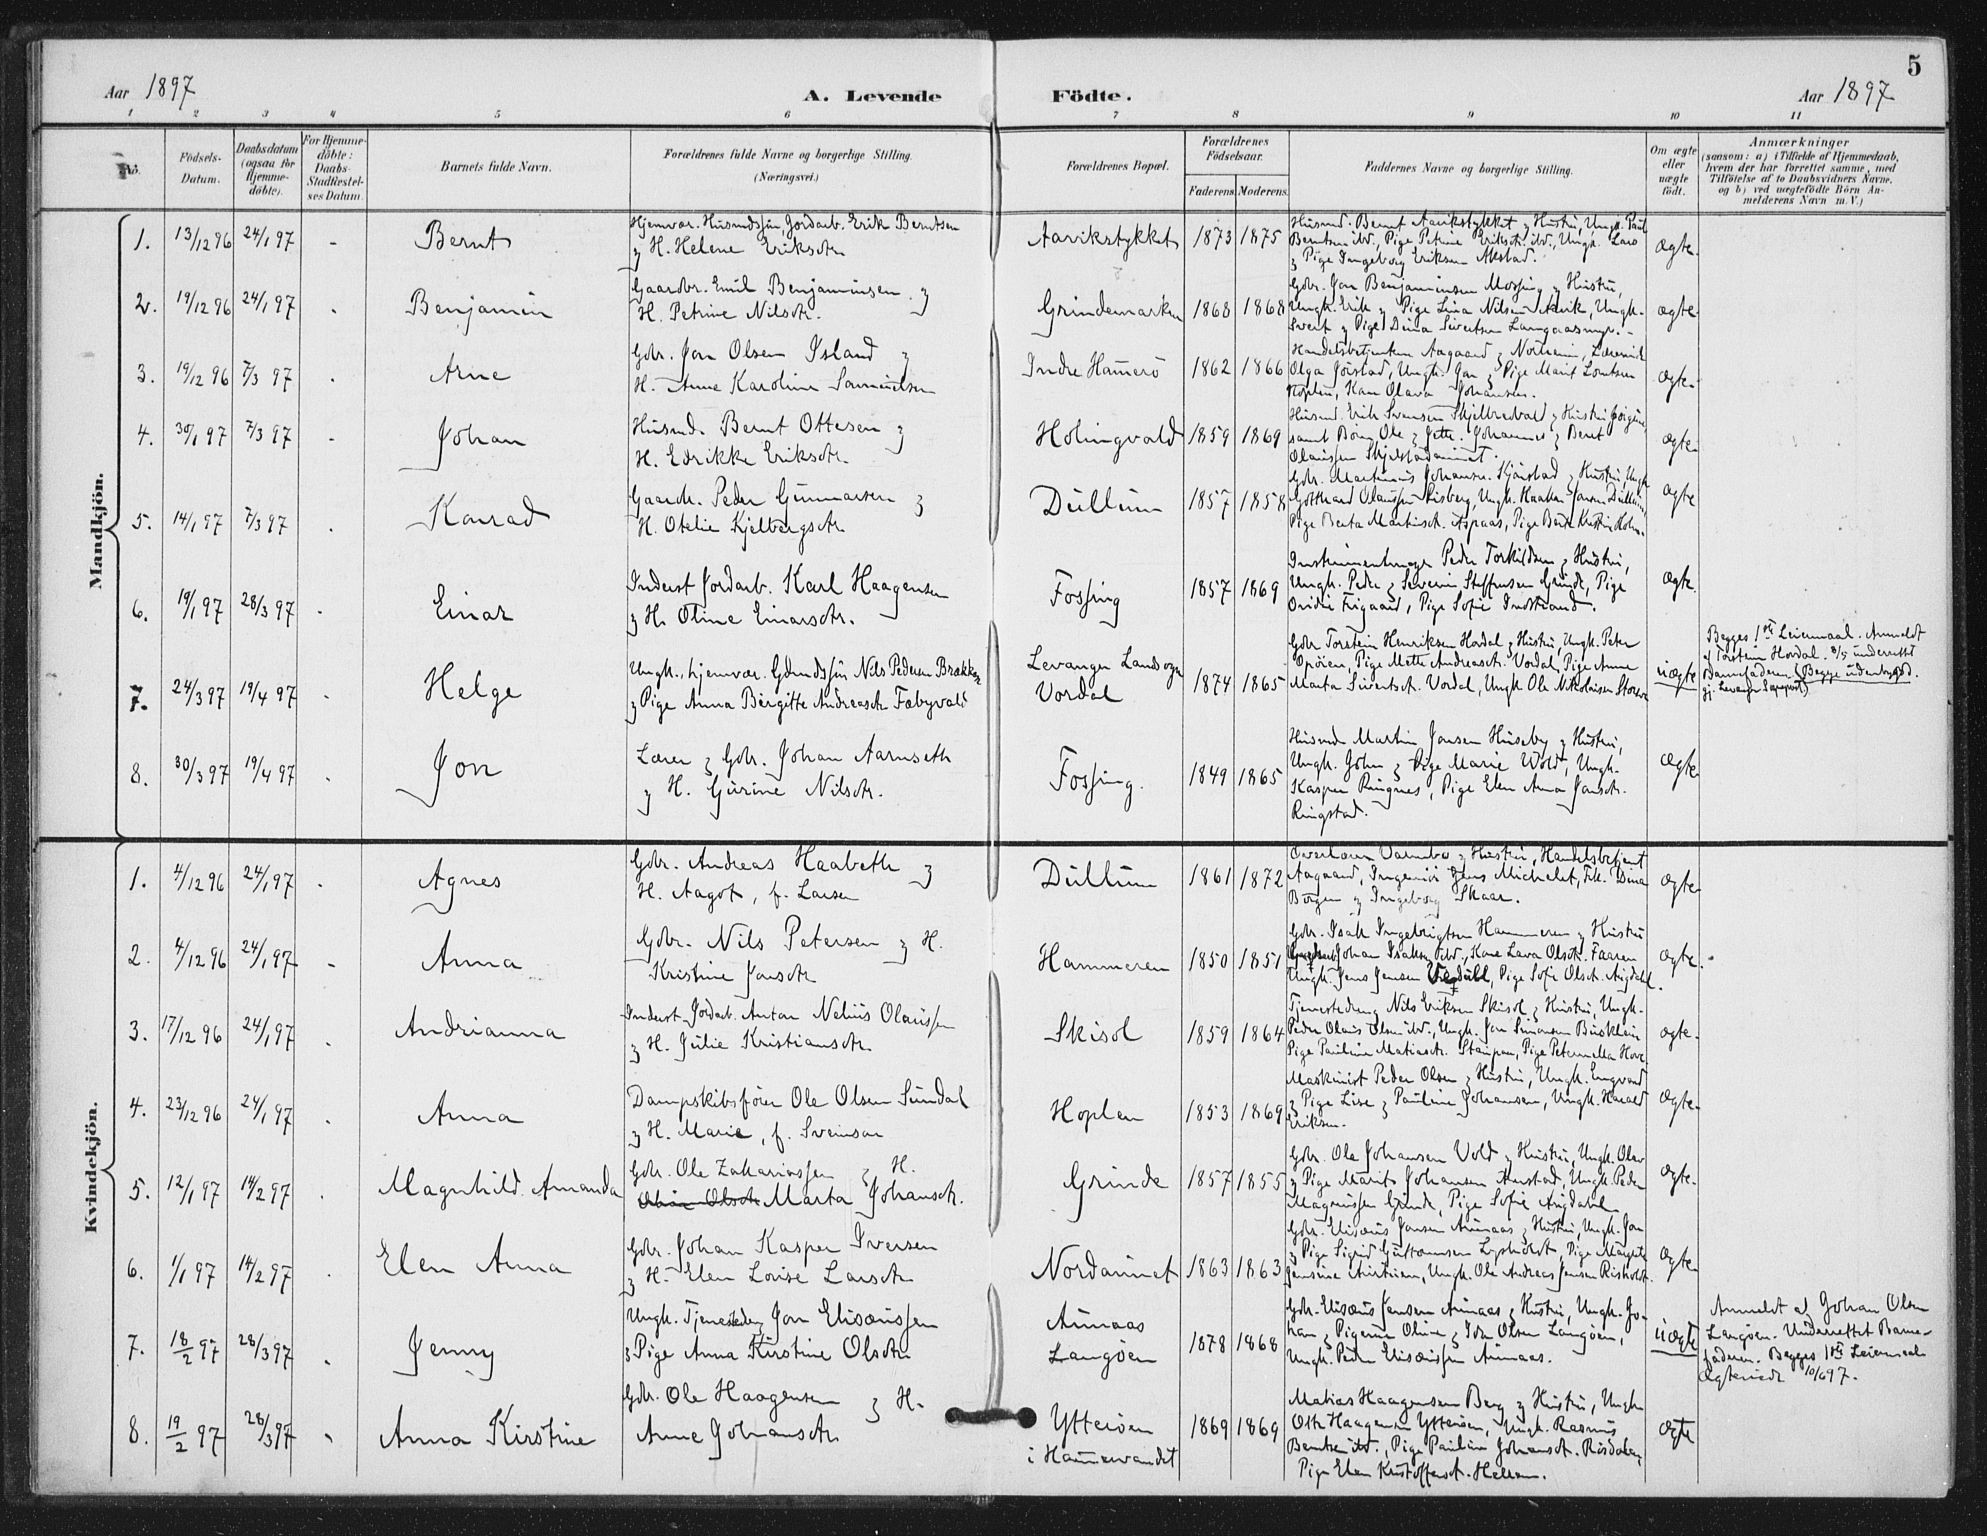 5
Aar 1897
A. Levende Födte.
Aar 1897
1 2 3 4 5 6 7 8 9 10 11
No.
Födsels-Datum.
Daabsdatum (ogsaa for Hjemme-döbte).
For Hjemme-döbte: Daabs-Stadfæstel-ses Datum.
Barnets fulde Navn.
Forældrenes fulde Navne og borgerlige Stilling. (Næringsvei.)
Forældrenes Bopæl.
Forældrenes Födselsaar.
Faderens. Moderens.
Faddernes Navne og borgerlige Stilling.
Om ægte eller uægte födt.
Anmærkninger
(saasom: a) i Tilfælde af Hjemmedaab, hvem der har forrettet samme, med Tilföielse af to Daabsvidners Navne, og b) ved uægtefödte Börn An-melderens Navn m. V.)
Mandkjön.
1. 13/12 96 24/1 97 - Bernt
Hjemvær. Husmdssön, Jordarb. Erik Berntsen
& H. Helene Eriksdtr.
Aarvikstykket 1873 1875
Husmd. Bernt Aarvikstykket & Hustru, Ungk. Paul
Berntsen ibd., Pige Petrine Eriksdt. ibd., Ungk. Lars
& Pige Ingeborg Eriksen
ægte
2. 19/12 96 24/1 97 Benjamin
Gaardbr. Emil Benjaminsen &
H. Petrine Nilsdtr.
Grindemarken 1868 1868
Gbr. Jon Benjaminsen Mossing & Hustru,
Ungk. Erik & Pige Lina Nilsen Ungk.
Sivert & Pige Dina Sivertsen Langaasmyr.
ægte
3. 19/12 96 7/3 97 Arne
Gbr. Jon Olsen Island &
H. Anne Karoline Samuelsen
Indre Hamerö 1862 1866
Handelsbetjentene Aagaard & Lærerinde
Olga Ungk. Jon & Pige Marit Lorntsen
Hoplen, Kone Olava Johansen.
ægte
4. 30/1 97 7/3 97 - Johan
Husmd. Bernt Ottesen &
H. Edrikke Eriksdtr.
Holingvald 1859 1869
Husmd. Erik Svensen Skjelbredvald & Hustru
samt Börn Ole & Jette. Johannes & Beret
Olaussen
ægte
5. 14/1 97 7/3 97 Konrad
Gaardr. Peder Gunnarsen &
H. Otelie Kjelbergsdtr.
Dullum 1857 1858
Gbr. Martinus Johansen & Hustru, Ungk.
Gotthard Olaussen Ungk. Haakon Dullum
Pige Berta Martinsdt. Aspaas, Pige Berte Kristin
ægte
6. 19/1 97 28/3 97 Einar
Inderst Jordarb. Karl Haagensen
& H. Oline Einarsdtr.
Fossing 1857 1869
Instrumentmager Peder Torkildsen & Hustru,
Ungk. Peder & Severin Steffensen Grinde, Pige
Frigaard, Pige Sofie Indstrand.
ægte
7. 24/3 97 19/4 97 Helge
Ungk., hjemvær. Gbrmdssön Nils Pedersen Brækken
& Pige Anna Bergitte Andreasdtr. Fæbyvald
Levanger Landsogn
Vordal 1874 1865
Gbr. Torstein Henriksen Hordal & Hustru, Ungk. Peter
Opöien, Pige Mette Andreasdt. Vordal, Pige Anne
Marta Sivertsdt. Vordal, Ungk. Ole Nikolaisen
uægte
Begges 1ste Leiermaal. Anmeldt
af Torstein Hordal. 8/5 underrettet
Barnefaderen (Begge udenbygds.
8. 30/3 97 19/4 97 Jon
Lærer & Gbr. Johan Aarnseth
& H. Gurine Nilsdtr.
Fossing. 1849 1865
Husmd Martin Jonsen Huseby & Hustru,
Ungk. John & Pige Marie Wold, Ungk.
Kasper Ringnes, Pige Elen Anna Jonsdt.
Ringstad.
ægte
Kvindekjön.
1. 4/12 96 24/1 97 Agnes
Gbr. Andreas Haabeth &
H. Aagot, f. Larsen
Dullum 1861 1872
Overlærer & Hustru, Handelsbetjent
Aagaard, Ingeniör Jens Michelet, Frk. Dina
Borgen & Ingeborg Skaar.
ægte
2. 4/12 96 24/1 97 - Anna
Gbr. Nils Petersen & H.
Kristine Jonsdtr
Hammeren 1850 1851
Gbr. Isak Ingebrigtsen Hammeren & Hustru
Johan Isaksen ibd., Kone Lava Olsdt. Faaren
Ungk. Jens Jensen Pige Sofie Olsdt.
ægte
3. 17/12 96 24/1 97 Andrianna
Inderst Jordarb. Anton Nelius Olaussen
& H. Julie Kristiansdtr.
Skisol 1859 1864
Tjenestedreng Nils Eriksen Skisol & Hustru, Ungk.
Peder Olaus Olsen ibd., Ungk. Jon Simonsen
Pige Pauline Matiasdtr. Staupan, Pige Peternella
ægte
4. 23/12 96 24/1 97 Anna
Dampskibsförer Ole Olsen Sundal
& H. Marie, f. Sveinson
Hoplen 1853 1869
Maskinist Peder Olsen & Hustru, Ungk. Engvard
& Pige Lise & Pauline Johansen, Ungk. Harald
Eriksen.
ægte
5. 12/1 97 14/2 97 Magnhild Amanda
Gbr. Ole Zakariassen & H.
Marta Johansdt.
Grinde 1857 1855
Gbr. Ole Johansen Vold & Hustru, Ungk. Olav
& Pige Marit Johansen Ungk. Peder
Magnussen Grinde, Pige Sofie
ægte
6. 1/1 97 14/2 97 Elen Anna
Gbr. Johan Kasper Iversen
& H. Elen Lovise Larsdtr
Nordaunet 1863 1863
Gbr. Elisæus Jensen Aunaas & Hustru, Ungk. Jon
& Pige Sigrid Pige Margrete
Jensine Ungk. Ole Andreas Jensen
ægte
7. 18/2 97 28/3 97 Jenny
Ungk. Tjenestedreng Jon Elisæussen
& Pige Anna Kirstine Olsdtr
Aunaas
Langöen 1878 1868
Gbr. Elisæus Jensen Aunaas & Hustru, Ungk. Jo-
han & Pigerne Oline & Ida Olsen Langöen,
Ungk. Peder Elisæussen Aunaas.
uægte
Anmeldt af Johan Olsen
Langöen. Underrettet Barne-
faderen. Begges 1ste Leiermaal
10/6 97.
8. 19/2 97 28/3 97 Anna Kirstine
Gbr. Ole Haagensen & H.
Anne Johansdtr
Ytteröen
i Hammervandet 1869 1869
Matias Haagensen Berg & Hustru, Ungk.
Otto Haagensen Ytteröen, Ungk. Rasmus
Berntsen ibd., Pige Pauline Johansdt.
Pige Elen Kristoffersdt.
ægte